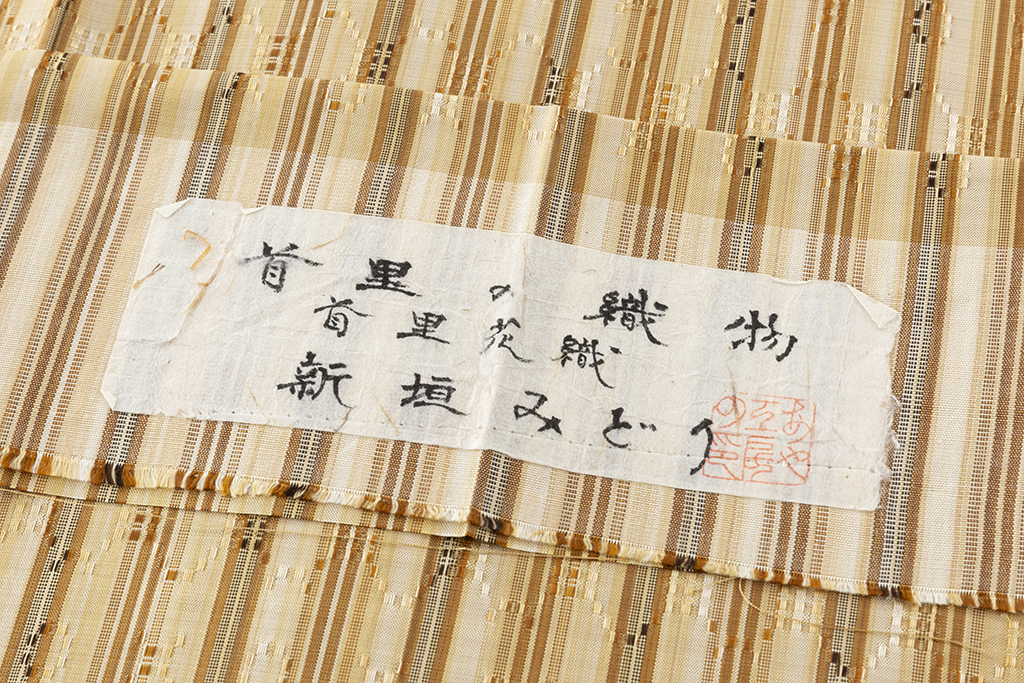 首里の織物
首里花織
新垣みどり